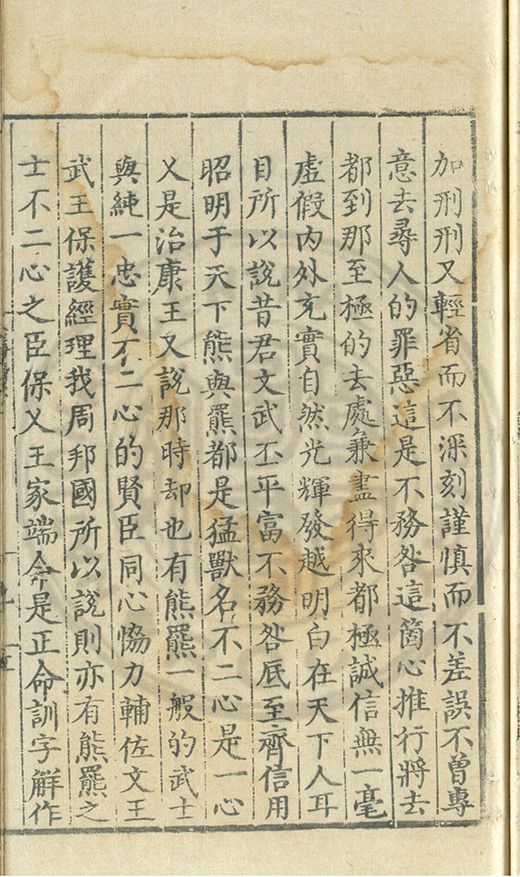 加刑刑又輕省而不深刻謹慎而不差誤不曾專
意去尋人的罪惡這是不務咎這箇心推行將去
都到那至極的去處兼盡得來都極誠信無一毫
虛假內外充實自然光輝發越明白在天下人耳
目所以說昔君文武丕平富不務咎底至齊信用
昭明于天下熊與羆都是猛獸名不二心是一心
乂是治康王又說那時却也有熊羆一般的武士
與純一忠實不二心的賢臣同心恊力輔佐文王
武王保護經理我周邦國所以說則亦有熊羆之
士不二心之臣保乂王家端命是正命訓字觧作